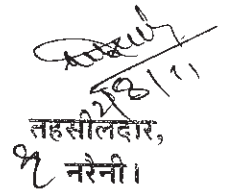 2/8/11
तहसीलदार,
नरैनी।